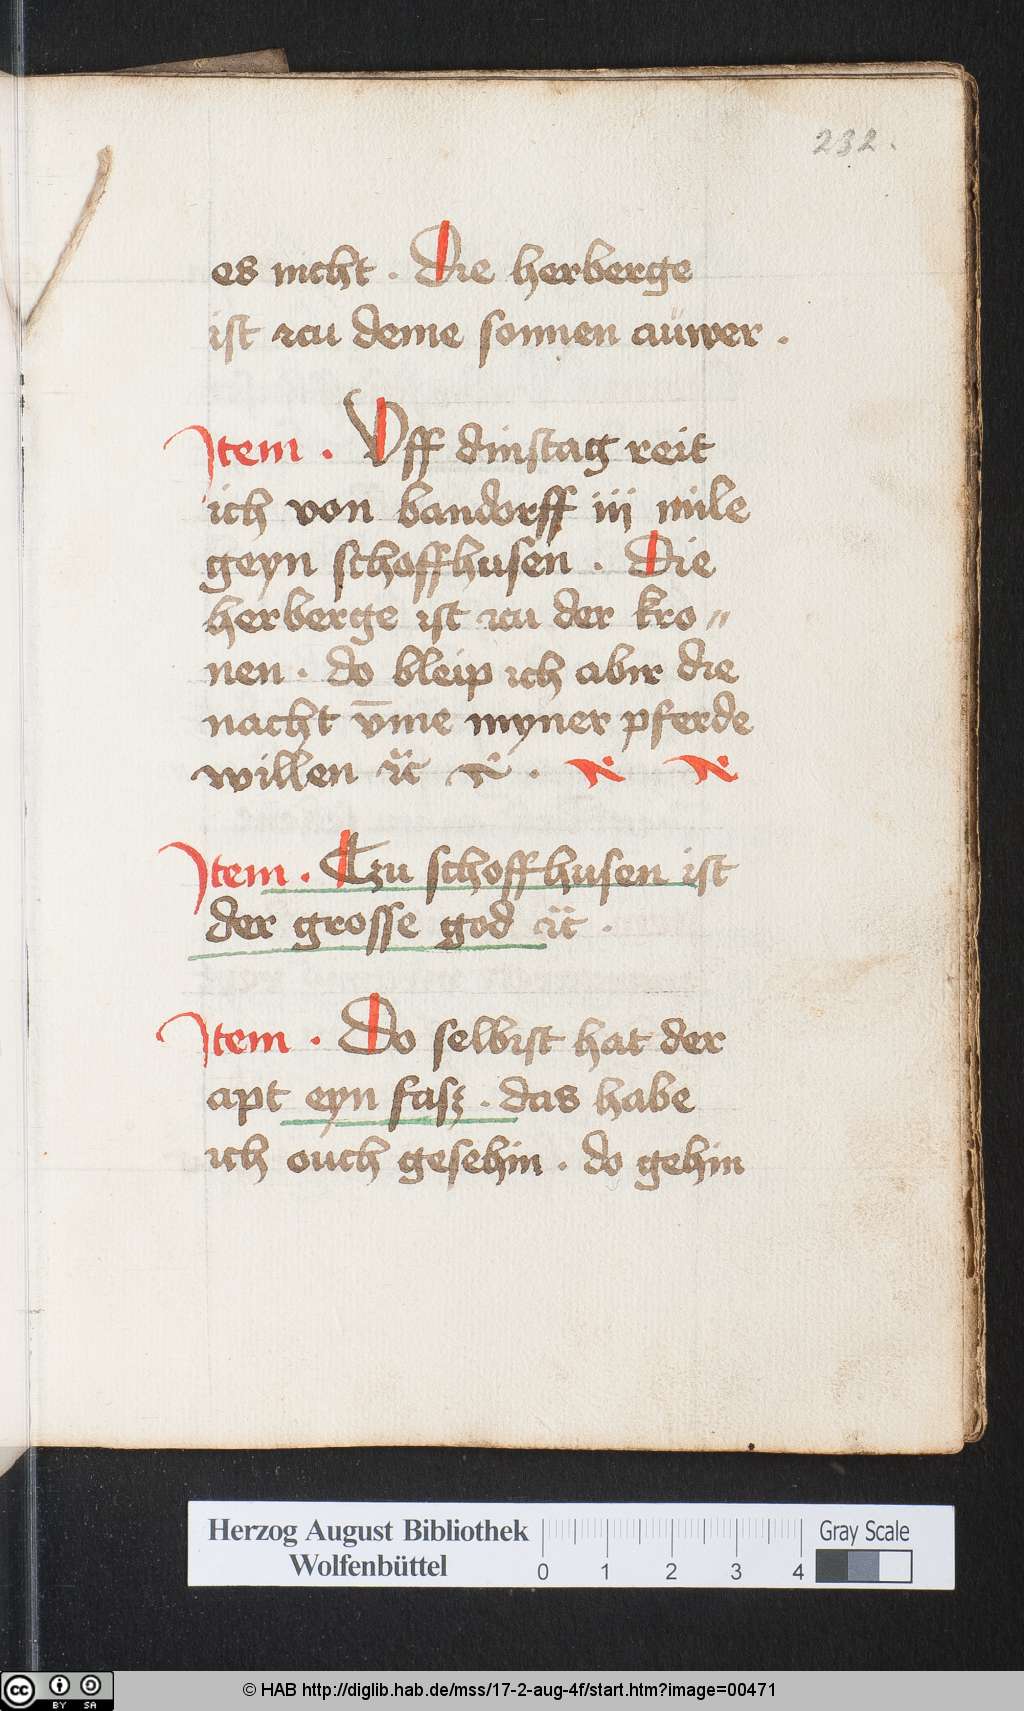 232.
es nicht . Die herberge
ist zcu deme sonnen aüwer .
Item . Vff dinstag reit
ich von bandorff iij mile
geyn schoffhusen . Die
herberge ist zcu der kro〃
nen . do bleip ich abir die
nacht v̄me myner pferde
willen ꝛc̈
Item . Czu schoffhusen ist
der grosse god ꝛc̈ .
Item . Do selbist hat der
apt eyn fasz . das habe
ich ouch gesehin . do gehin
Herzog August Bibliothek
Wolfenbüttel
0 1 2 3 4
Gray Scale
cc BY SA
© HAB http://diglib.hab.de/mss/17-2-aug-4f/start.htm?image=00471